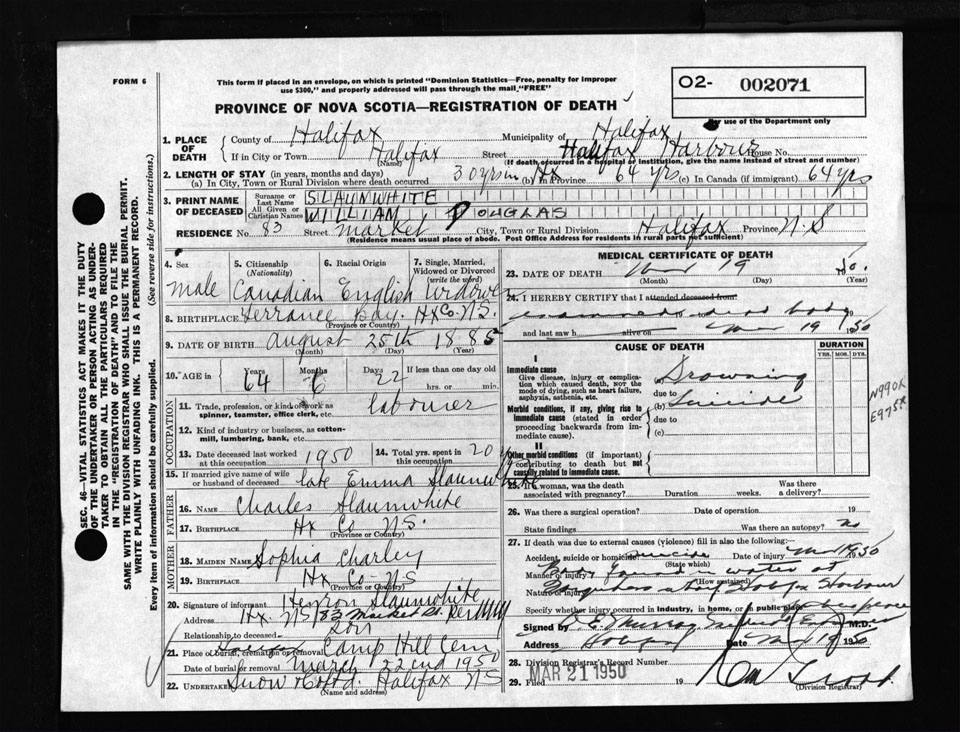 FORM 6
This form if placed in an envelope, on which is printed "Dominion Statistics—Free, penalty for improper
use $300," and properly addressed will pass through the mail "FREE"
O2- 002071
PROVINCE OF NOVA SCOTIA—REGISTRATION OF DEATH
For use of the Department only
1. PLACE OF DEATH { County of Halifax Municipality of Halifax
If in City or Town Halifax Street Halifax Harbour House No.
(Name) (If death occurred in a hospital or institution, give the name instead of street and number)
2. LENGTH OF STAY (in years, months and days)
(a) In City, Town or Rural Division where death occurred 30 yrs in Hx (b) In Province 64 yrs (c) In Canada (if immigrant) 64 yrs
3. PRINT NAME OF DECEASED { Surname or Last Name SLAUNWHITE
All Given or Christian Names WILLIAM DOUGLAS
RESIDENCE No. 83 Street Market City, Town or Rural Division Halifax Province N.S
(Residence means usual place of abode. Post Office Address for residents in rural parts not sufficient)
4. Sex
male
5. Citizenship (Nationality)
Canadian
6. Racial Origin
English
7. Single, Married, Widowed or Divorced (write the word)
Widower
8. BIRTHPLACE Terrance Bay. Hx Co. N.S.
(Province or Country)
9. DATE OF BIRTH August 25th 1885
(Month) (Day) (Year)
10. AGE in { Years 64 Months 6 Days 22 If less than one day old
hrs. or min.
OCCUPATION
11. Trade, profession, or kind of work as spinner, teamster, office clerk, etc. labourer
12. Kind of industry or business, as cotton-mill, lumbering, bank, etc.
13. Date deceased last worked at this occupation 1950
14. Total yrs. spent in this occupation 20
15. If married give name of wife or husband of deceased late Emma Slaunwhite
FATHER
16. NAME Charles Slaunwhite
17. BIRTHPLACE Hx Co N.S.
(Province or Country)
MOTHER
18. MAIDEN NAME Sophia Charley
19. BIRTHPLACE Hx Co N.S
(Province or Country)
20. Signature of informant Slaunwhite
Address Hx. N.S 83 Market St.
Relationship to deceased Son
21. Place of burial, cremation or removal Camp Hill Cem
Date of burial or removal March 22nd 1950
22. Undertaker Snow & Co Ltd. Halifax N.S
(Name and address)
MEDICAL CERTIFICATE OF DEATH
23. DATE OF DEATH Mar 19 50.
(Month) (Day) (Year)
24. I HEREBY CERTIFY that I attended deceased from
examined dead body
and last saw h alive on Mar 19 1950
CAUSE OF DEATH
DURATION
YRS. MOS. DYS.
I
Immediate cause
Give disease, injury or complication which caused death, NOT the mode of dying, such as heart failure, asphyxia, asthenia, etc.
(a) Drowning
due to
Morbid conditions, if any, giving rise to immediate cause (stated in order proceeding backwards from immediate cause).
(b) Suicide
due to
(c)
II
Other morbid conditions (if important) contributing to death but not causally related to immediate cause.
N990X
E975X
25. If a woman, was the death associated with pregnancy? Duration weeks. Was there a delivery?
26. Was there a surgical operation? Date of operation
State findings Was there an autopsy? no
27. If death was due to external causes (violence) fill in also the following:—
Accident, suicide or homicide suicide Date of injury Mar 19 50
(State which)
Manner of injury Body found in water at
(How sustained)
Nature of injury Halifax Harbour
Specify whether injury occurred in industry, in home, or in public place
Signed by Murray M.D.
Address Date Mar 19 1950
28. Division Registrar's Record Number
29. Filed MAR 21 1950 19
(Division Registrar)
SEC. 46—VITAL STATISTICS ACT MAKES IT THE DUTY
OF THE UNDERTAKER OR PERSON ACTING AS UNDER-
TAKER TO OBTAIN ALL THE PARTICULARS REQUIRED
IN THE "REGISTRATION OF DEATH" AND TO FILE THE
SAME WITH THE DIVISION REGISTRAR WHO SHALL ISSUE THE BURIAL PERMIT.
WRITE PLAINLY WITH UNFADING INK. THIS IS A PERMANENT RECORD.
Every item of information should be carefully supplied. (See reverse side for instructions.)